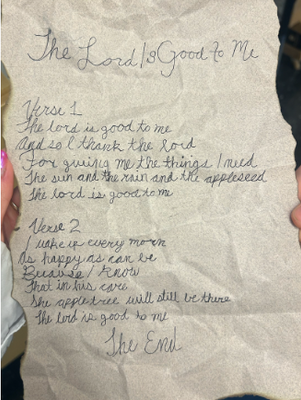 The Lord Is Good to Me
Verse 1
The lord is good to me
And so I thank the lord
For giving me the things I need
The sun and the rain and the appleseed
The lord is good to me
Verse 2
I wake up every morn
As happy as can be
Because I know
That in his care
The apple tree will still be there
The lord is good to me
The End